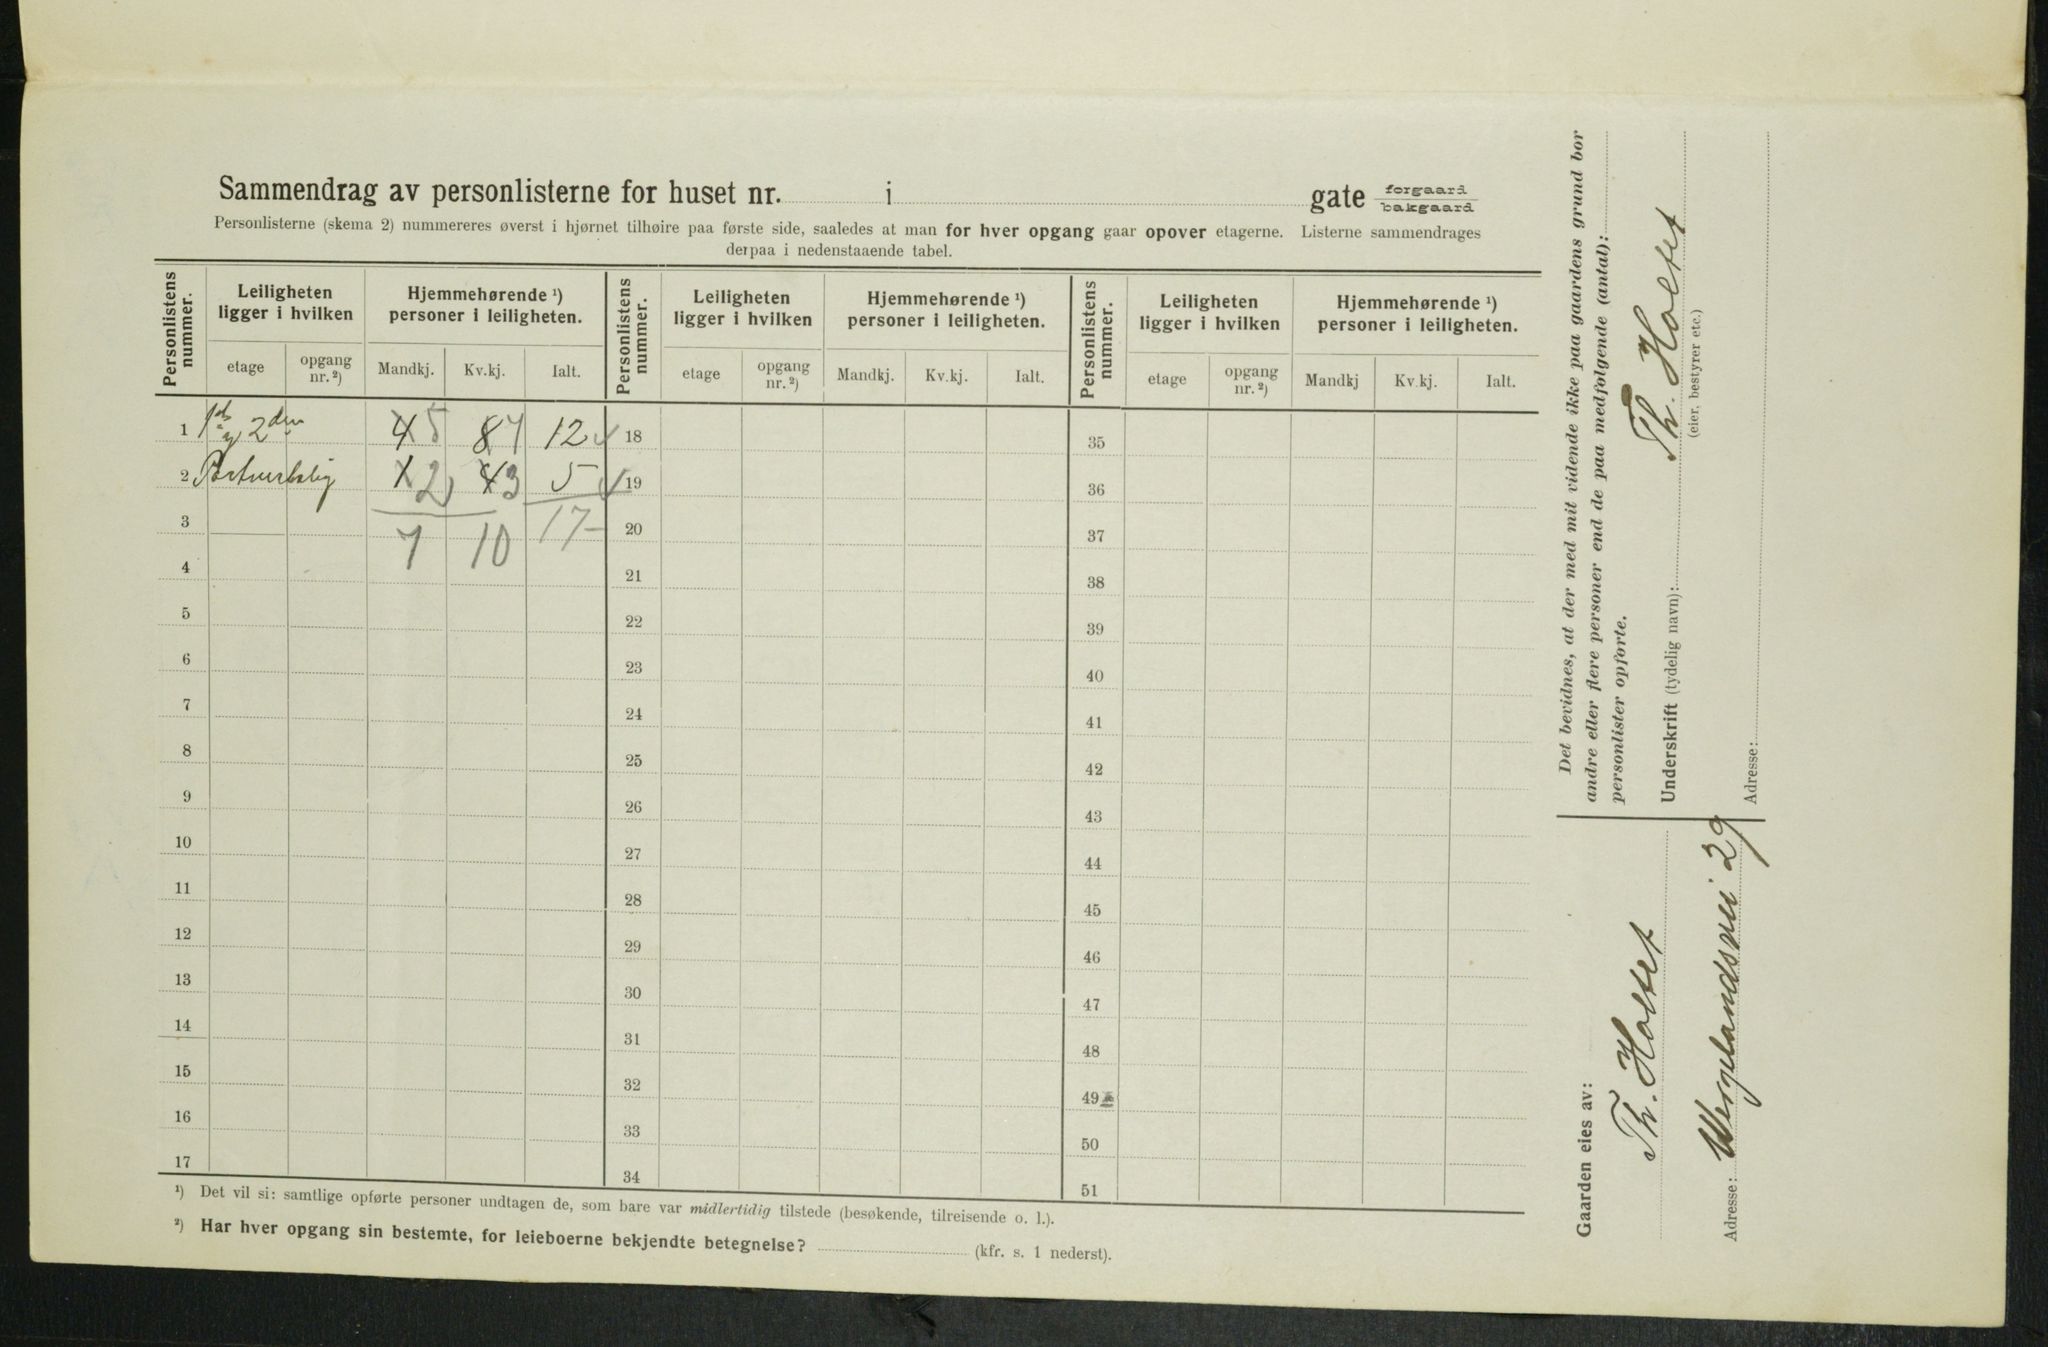 Sammendrag av personlisterne for huset nr. i gate forgaard bakgaard
Personlisterne (skema 2) nummereres øverst i hjørnet tilhøire paa første side, saaledes at man for hver opgang gaar opover etagerne. Listerne sammendrages
derpaa i nedenstaaende tabel.
Personlistens nummer. Leiligheten ligger i hvilken Hjemmehørende ¹) personer i leiligheten. Personlistens nummer. Leiligheten ligger i hvilken Hjemmehørende ¹) personer i leiligheten. Personlistens nummer. Leiligheten ligger i hvilken Hjemmehørende ¹) personer i leiligheten.
etage opgang nr. ²) Mandkj. Kv.kj. Ialt. etage opgang nr. ²) Mandkj. Kv.kj. Ialt. etage opgang nr. ²) Mandkj Kv.kj. Ialt.
1 2den 4 5 8 7 12 18 35
2 2 4 3 5 19 36
3 7 10 17 20 37
4 21 38
5 22 39
6 23 40
7 24 41
8 25 42
9 26 43
10 27 44
11 28 45
12 29 46
13 30 47
14 31 48
15 32 49
16 33 50
17 34 51
¹) Det vil si: samtlige opførte personer undtagen de, som bare var midlertidig tilstede (besøkende, tilreisende o. l.).
²) Har hver opgang sin bestemte, for leieboerne bekjendte betegnelse? (kfr. s. 1 nederst).
Det bevidnes, at der med mit vidende ikke paa gaardens grund bor
andre eller flere personer end de paa medfølgende (antal):
personlister opførte.
Underskrift (tydelig navn): Th. Holtet
(eier, bestyrer etc.)
Adresse:
Gaarden eies av:
Th. Holtet
Adresse: Wergelandsvei 29